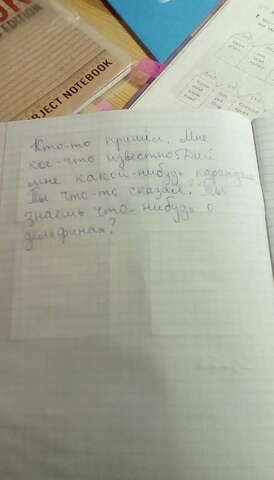 SUBJECT NOTEBOOK
Кто-то пришёл. Мне
кое-что известно. Дай
мне какой-нибудь карандаш
Ты что-то сказал. Ты
знаешь что-нибудь о
дельфинах?